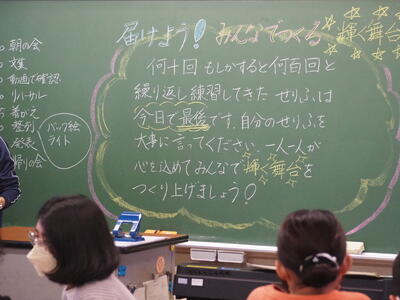 届けよう! みんなでつくる 輝く舞台
朝の会
文集
動画で確認
リハーサル
着がえ
整列
発表
帰りの会
バック絵
ライト
何十回 もしかすると何百回と
繰り返し練習してきた せりふは
今日で最後です。自分のせりふを
大事に言ってください。一人一人が
心を込めてみんなで輝く舞台を
つくり上げましょう!